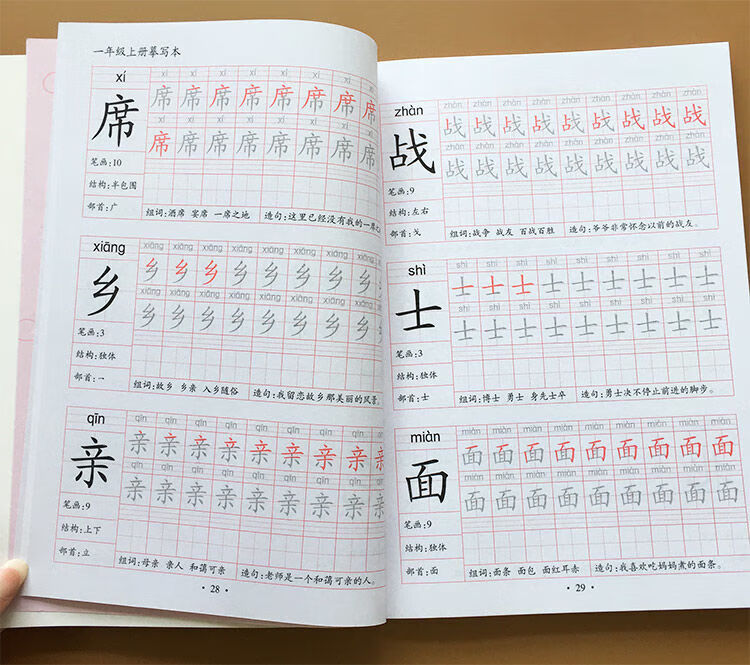 一年级上册摹写本
xí
xí xí xí xí xí xí xí xí
席
席 席 席 席 席 席 席 席
xí xí xí xí xí xí xí xí
席 席 席 席 席 席 席 席
笔画:10
结构:半包围
部首:广
组词:酒席 宴席 一席之地 造句:这里已经没有我的一席之
xiāng
xiāng xiāng xiāng xiāng xiāng xiāng xiāng xiāng
乡
乡 乡 乡 乡 乡 乡 乡 乡
xiāng xiāng xiāng xiāng xiāng xiāng xiāng xiāng
乡 乡 乡 乡 乡 乡 乡 乡
笔画:3
结构:独体
部首:一
组词:故乡 乡亲 入乡随俗 造句:我留恋故乡那美丽的风景。
qīn
qīn qīn qīn qīn qīn qīn qīn qīn qīn
亲
亲 亲 亲 亲 亲 亲 亲 亲 亲
qīn qīn qīn qīn qīn qīn qīn qīn qīn
亲 亲 亲 亲 亲 亲 亲 亲 亲
笔画:9
结构:上下
部首:立
组词:母亲 亲人 和蔼可亲 造句:老师是一个和蔼可亲的人。
· 28 ·
zhàn
zhàn zhàn zhàn zhàn zhàn zhàn zhàn zhàn zhàn
战
战 战 战 战 战 战 战 战 战
zhàn zhàn zhàn zhàn zhàn zhàn zhàn zhàn zhàn
战 战 战 战 战 战 战 战 战
笔画:9
结构:左右
部首:戈
组词:战争 战友 百战百胜 造句:爷爷非常怀念以前的战友。
shì
shì shì shì shì shì shì shì shì shì
士
士 士 士 士 士 士 士 士 士
shì shì shì shì shì shì shì shì shì
士 士 士 士 士 士 士 士 士
笔画:3
结构:独体
部首:士
组词:博士 勇士 身先士卒 造句:勇士决不停止前进的脚步。
miàn
miàn miàn miàn miàn miàn miàn miàn miàn miàn
面
面 面 面 面 面 面 面 面 面
miàn miàn miàn miàn miàn miàn miàn miàn miàn
面 面 面 面 面 面 面 面 面
笔画:9
结构:独体
部首:面
组词:面条 面包 面红耳赤 造句:我喜欢吃妈妈煮的面条。
· 29 ·